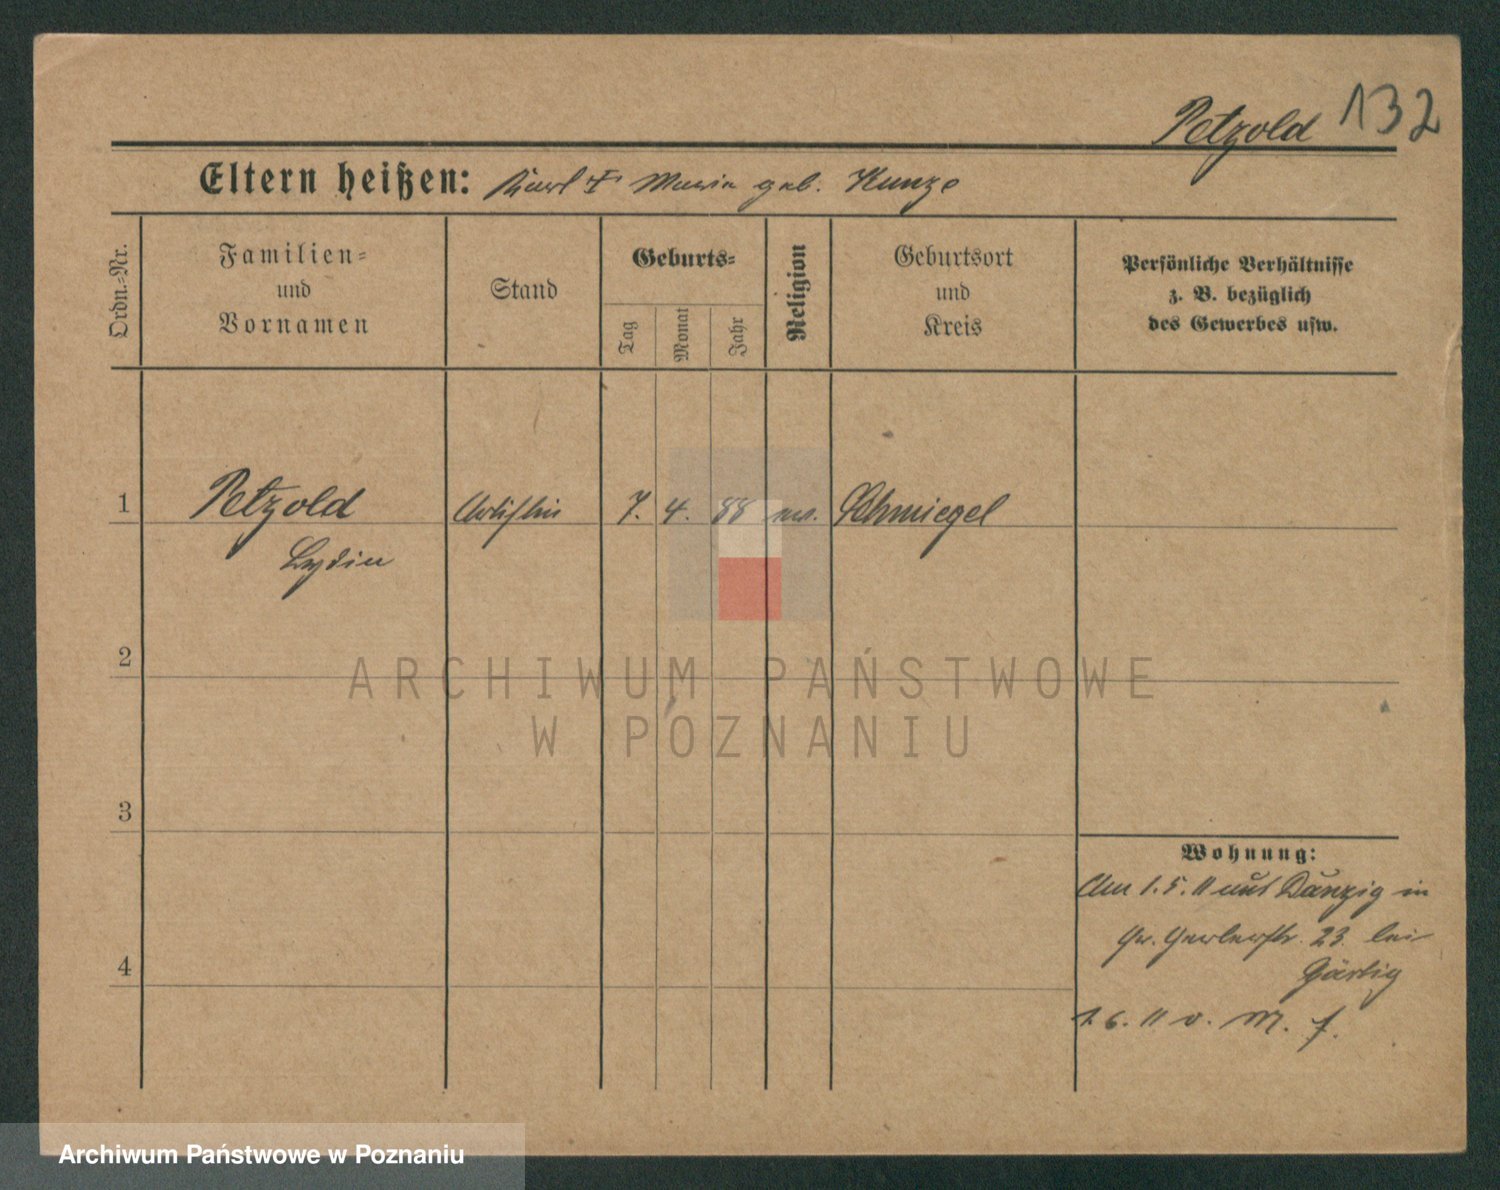 Petzold 132
Eltern heißen: Karl † Maria geb. Kunze
Ordn.-Nr.
Familien-
und
Vornamen
Stand
Geburts-
Tag
Monat
Jahr
Religion
Geburtsort
und
Kreis
Persönliche Verhältnisse
z. B. bezüglich
des Gewerbes usw.
1 Petzold 7. 4. 88 ev. Schmiegel
Lydia
2
3
4
Wohnung:
Am 1.5.11 aus Danzig in
Gr. Gerberstr. 23. bei
1.6.11 v. M. f.
ARCHIWUM PAŃSTWOWE
W POZNANIU
Archiwum Państwowe w Poznaniu